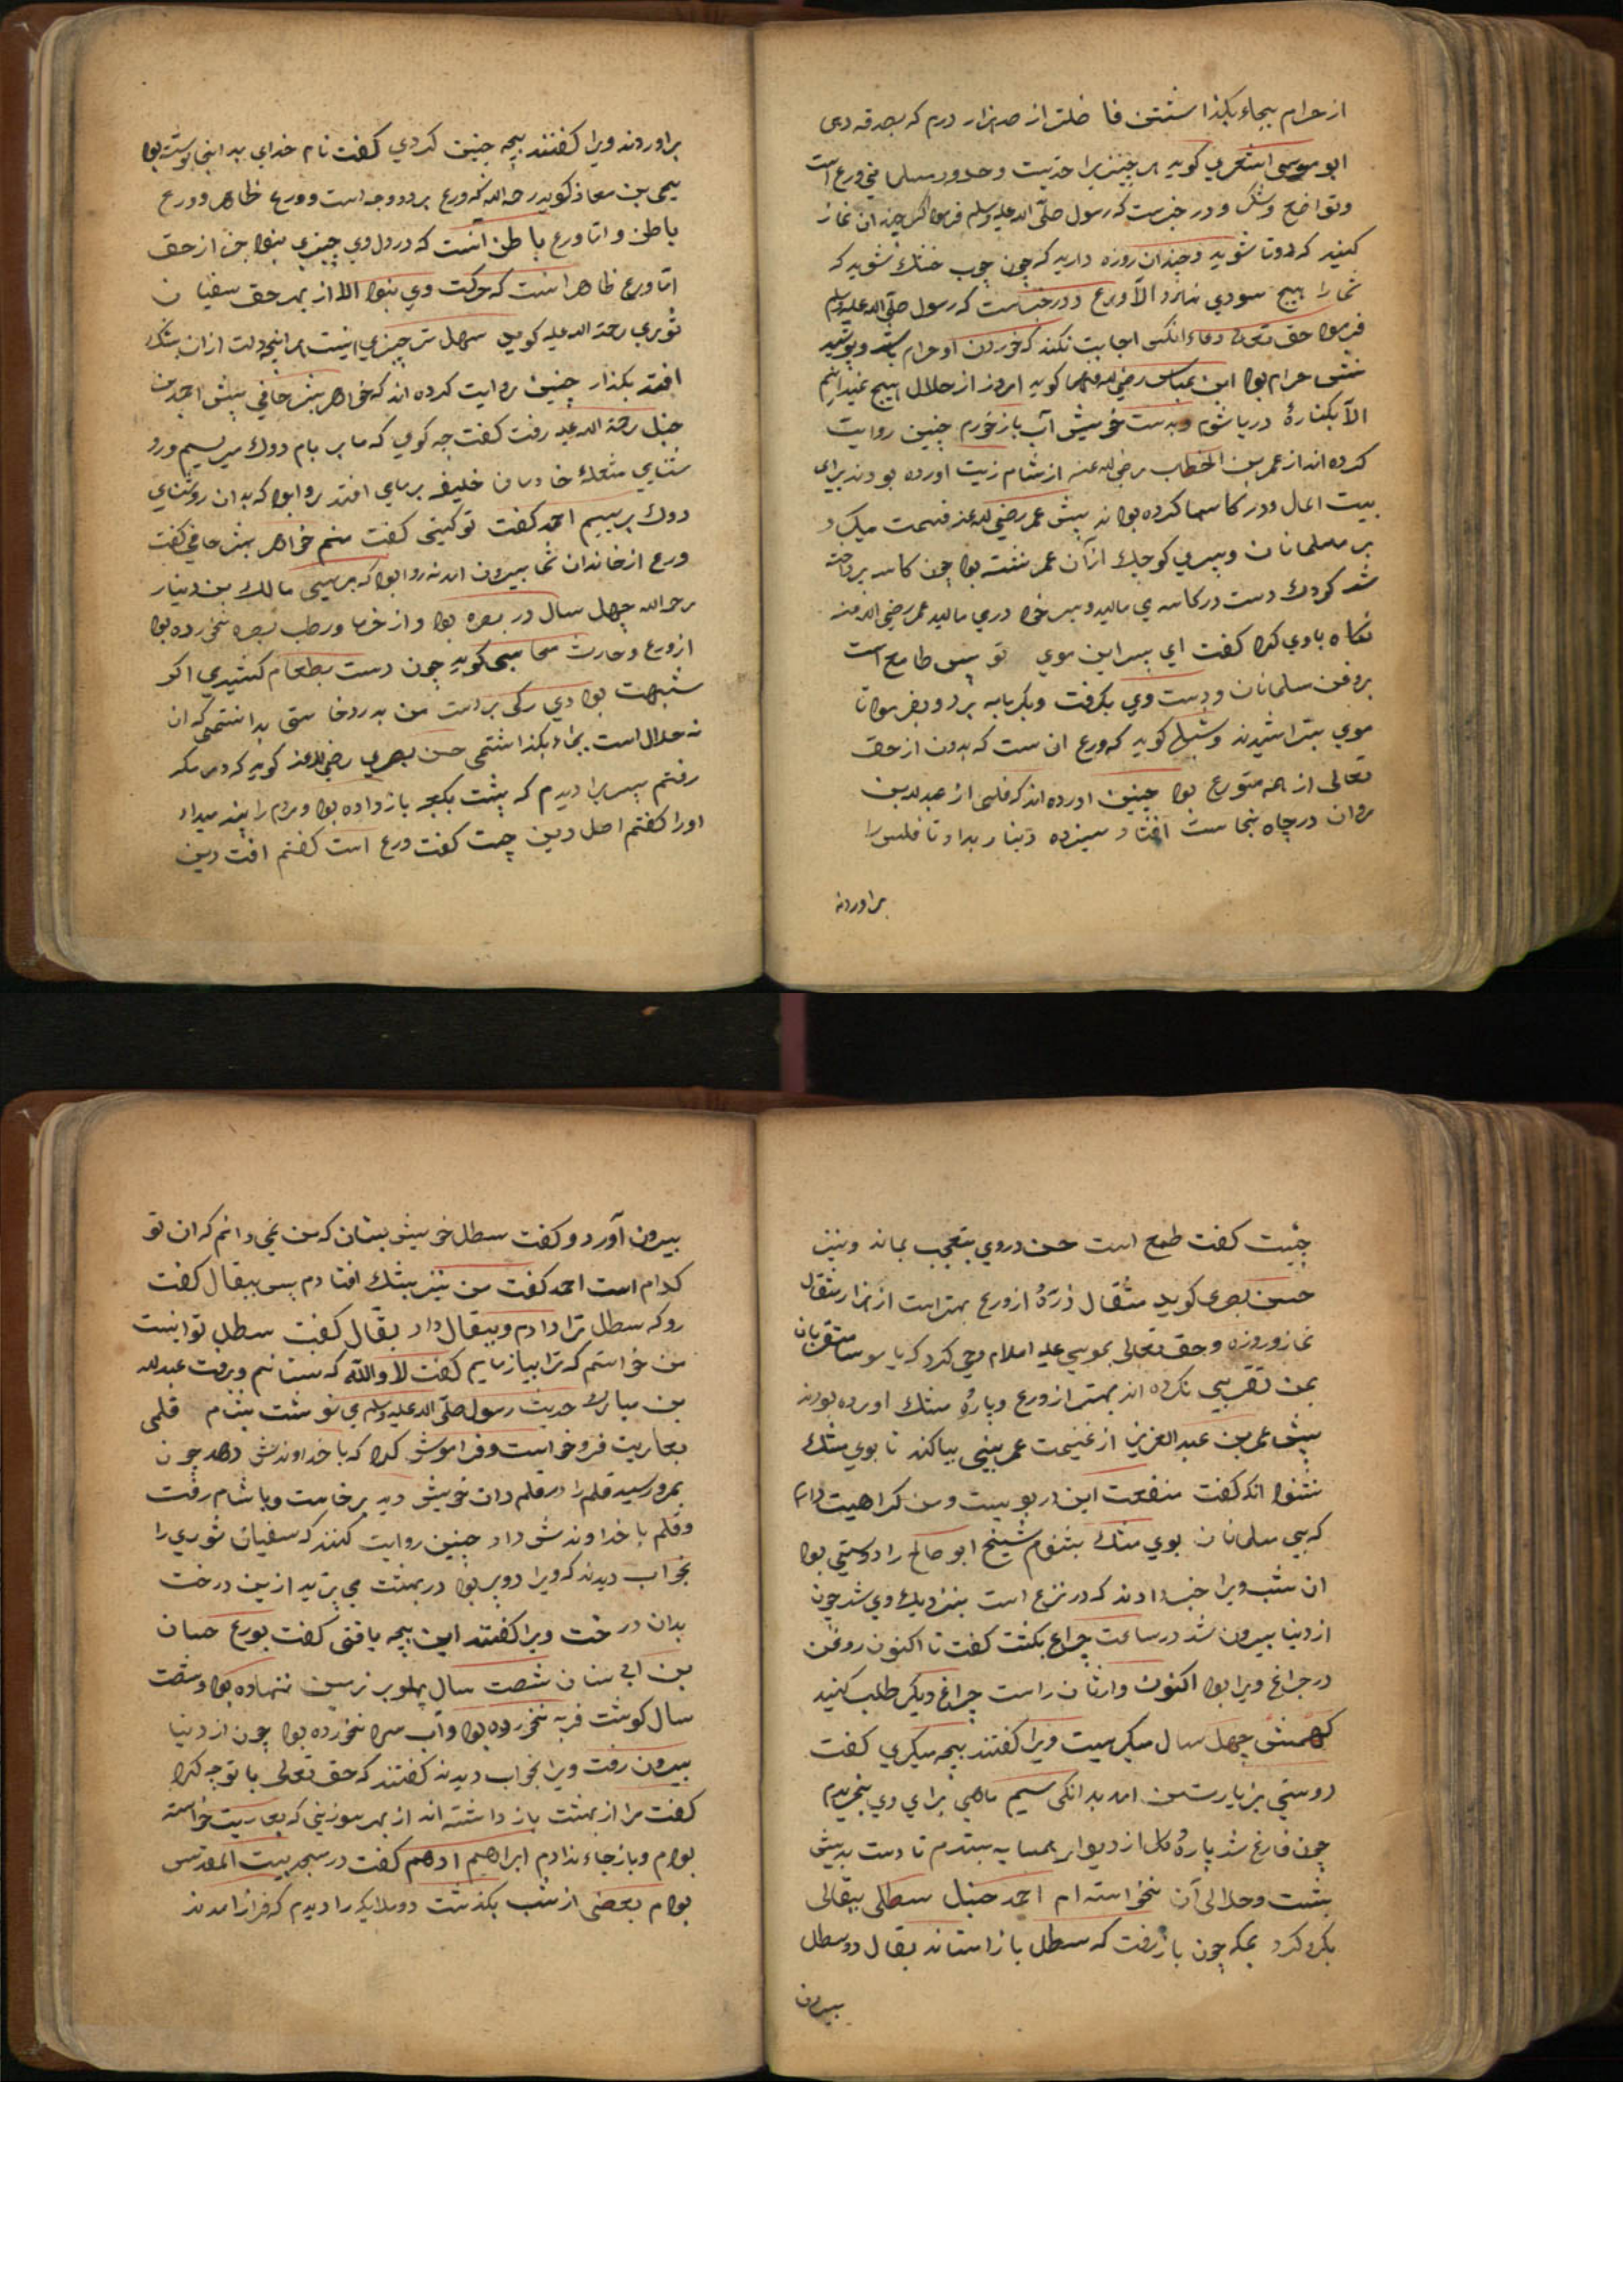 از حرام بجاء بگذاشتن فاضلتر از صد هزار درم که بصدقه دهی
ابو موسی اشعری کوید هر چیزیرا حدیست وحدود مسلمانی ورع است
وتواضع وشکر ودر خبرست که رسول صلی الله علیه وسلم فرمود اکر چندان نماز
کنید که دوتا شوید وچندان روزه دارید که چون چوب خشک شوید که
شما را هیچ سودی ندارد الا ورع ودر خبرست که رسول صلی الله علیه وسلم
فرمود حق تعالی دعاء انکس اجابت نکند که خوردن او حرام باشد وپوشید
نش حرام بود ابن عباس رضی الله عنهما کوید امروز از حلال هیچ نمیدانم
الا بکناره دریا شوم وبدست خویش آب باز خورم چنین روایت
کرده اند از عمر بن الخطاب رضی الله عنه از شام زیت اورده بودند برای
بیت المال ودر کاسها کرده بودند پیش عمر رضی الله عنه قسمت میکرد
بر مسلمانان وپسری کوچک از آن عمر نشسته بود چون کاسه پرداخته
شد کودک دست در کاسه می مالید وبسر خود دری مالید عمر رضی الله عنه
نکاه باوی کرد کفت ای پسر این موی تو بس طامع است
بروغن مسلمانان ودست وی بکرفت وبکرمابه برد وبفرمود تا
موی بتراشیدند وشبلی کوید که ورع ان ست که بدون از حق
تعالی از همه متورع بود چنین اورده اند که فلسی از عبدالله بن
مروان در چاه نجاست افتاد سیزده دینار بداد تا فلس را
براوردند
براوردند ویرا کفتند بچه چنین کردی کفت نام خدای بر انجا نوشته بود
یحیی بن معاذ کوید رحمه الله که ورع بر دو وجه است ورع ظاهر وورع
باطن واما ورع باطن آنست که در دل وی چیزی نبود جز از حق
اما ورع ظاهر انست که حرکت وی نبود الا از بهر حق سفیان
ثوری رحمة الله علیه کوید سهل تر چیزی اینست هر انچه دلت ازان بشک
افتد بکذار چنین روایت کرده اند که خواهر بشر حافی پیش احمد بن
حنبل رحمة الله علیه رفت کفت چه کوی که ما بر بام دوک میریسیم ورو
شنایی مشعله خادمان خلیفه بر ما می افتد روا بود که بدان روشنای
دوک بریسیم احمد کفت تو کیستی کفت منم خواهر بشر حافی کفت
ورع از خاندان شما بیرون امد نه روا بود که بریسی مالک بن دینار
رحمه الله چهل سال در بصره بود واز خرما ورطب بصره نخورده بود
از ورع وحارث محاسبی کوید چون دست بطعام کشیدی اکر
شبهت بودی رکی بر دست من بدرد خاستی بدانستمی که ان
نه حلال است بجاء بکذاشتمی حسن بصری رضی الله عنه کوید که در مکه
رفتم پسریرا دیدم که پشت بکعبه باز داده بود ومردم را پند میداد
اورا کفتم اصل دین چیست کفت ورع است کفتم افت دین
چیست کفت طمع است حسن در وی بتعجب بماند ونیز
حسن بصری کوید مثقال ذره از ورع بهتر است از هزار مثقال
نماز وروزه وحق تعالی بموسی علیه السلام وحی کرد که یا موسی متقربان
بمن تقربی نکرده اند بهتر از ورع وپاره مشک اورده بودند
پیش عمر بن عبد العزیز از غنیمت عمر بینی بیاکند تا بوی مشک
نشنود انکه کفت منفعت این در بویست ومن کراهیت دارم
که بی مسلمانان بوی مشک بشنوم شیخ ابو صالح را دوستی بود
ان شب ویرا خبر دادند که در نزع است بنزدیک وی شد چون
از دنیا بیرون شد در ساعت چراغ بکشت کفت تا اکنون روغن
در چراغ ویرا بود اکنون وارثان راست چراغ دیکر طلب کنید
کهمش چهل سال میکریست ویرا کفتند بچه میکری کفت
دوستی بزیارت من امد بدانکی سیم ماهی برای وی بخریدم
چون فارغ شد پاره کل از دیوار همسایه بستدم تا دست بدیش
بشست وحلالی آن نخواسته ام احمد حنبل سطلی ببقالی
بکرو کرد بمکه چون باز رفت که سطل باز استاند بقال دو سطل
بیرون
بیرون آورد وکفت سطل خویش بستان که من نمی دانم که ان تو
کدام است احمد کفت من نیز بشک افتادم پس ببقال کفت
رو که سطل ترا دادم وببقال داد بقال کفت سطل تو اینست
من خواستم که ترا بیازمایم کفت لا والله که نستانم وبرفت عبدالله
بن مبارک حدیث رسول صلی الله علیه وسلم می نوشت بشام قلمی
بعاریت فروخواست وفراموش کرد که با خداوندش دهد چون
بمرو رسید قلم را در قلم دان خویش دید برخاست وباشام رفت
وقلم با خداوندش داد چنین روایت کنند که سفیان ثوری را
بخواب دیدند که ویرا دو پر بود در بهشت می پرید ازین درخت
بدان درخت ویرا کفتند این بچه یافتی کفت بورع حسان
بن ابی سنان شصت سال پهلو بر زمین ننهاده بود وشصت
سال کوشت فربه نخورده بود وآب سرد نخورده بود چون از دنیا
بیرون رفت ویرا بخواب دیدند کفتند که حق تعالی با تو چه کرد
کفت مرا از بهشت باز داشته اند از بهر سوزنی که بعاریت خواسته
بودم وباز جاء نذادم ابراهیم ادهم کفت در مسجد بیت المقدس
بودم بعضی از شب بکذشت دو ملایکه را دیدم که فراز امدند